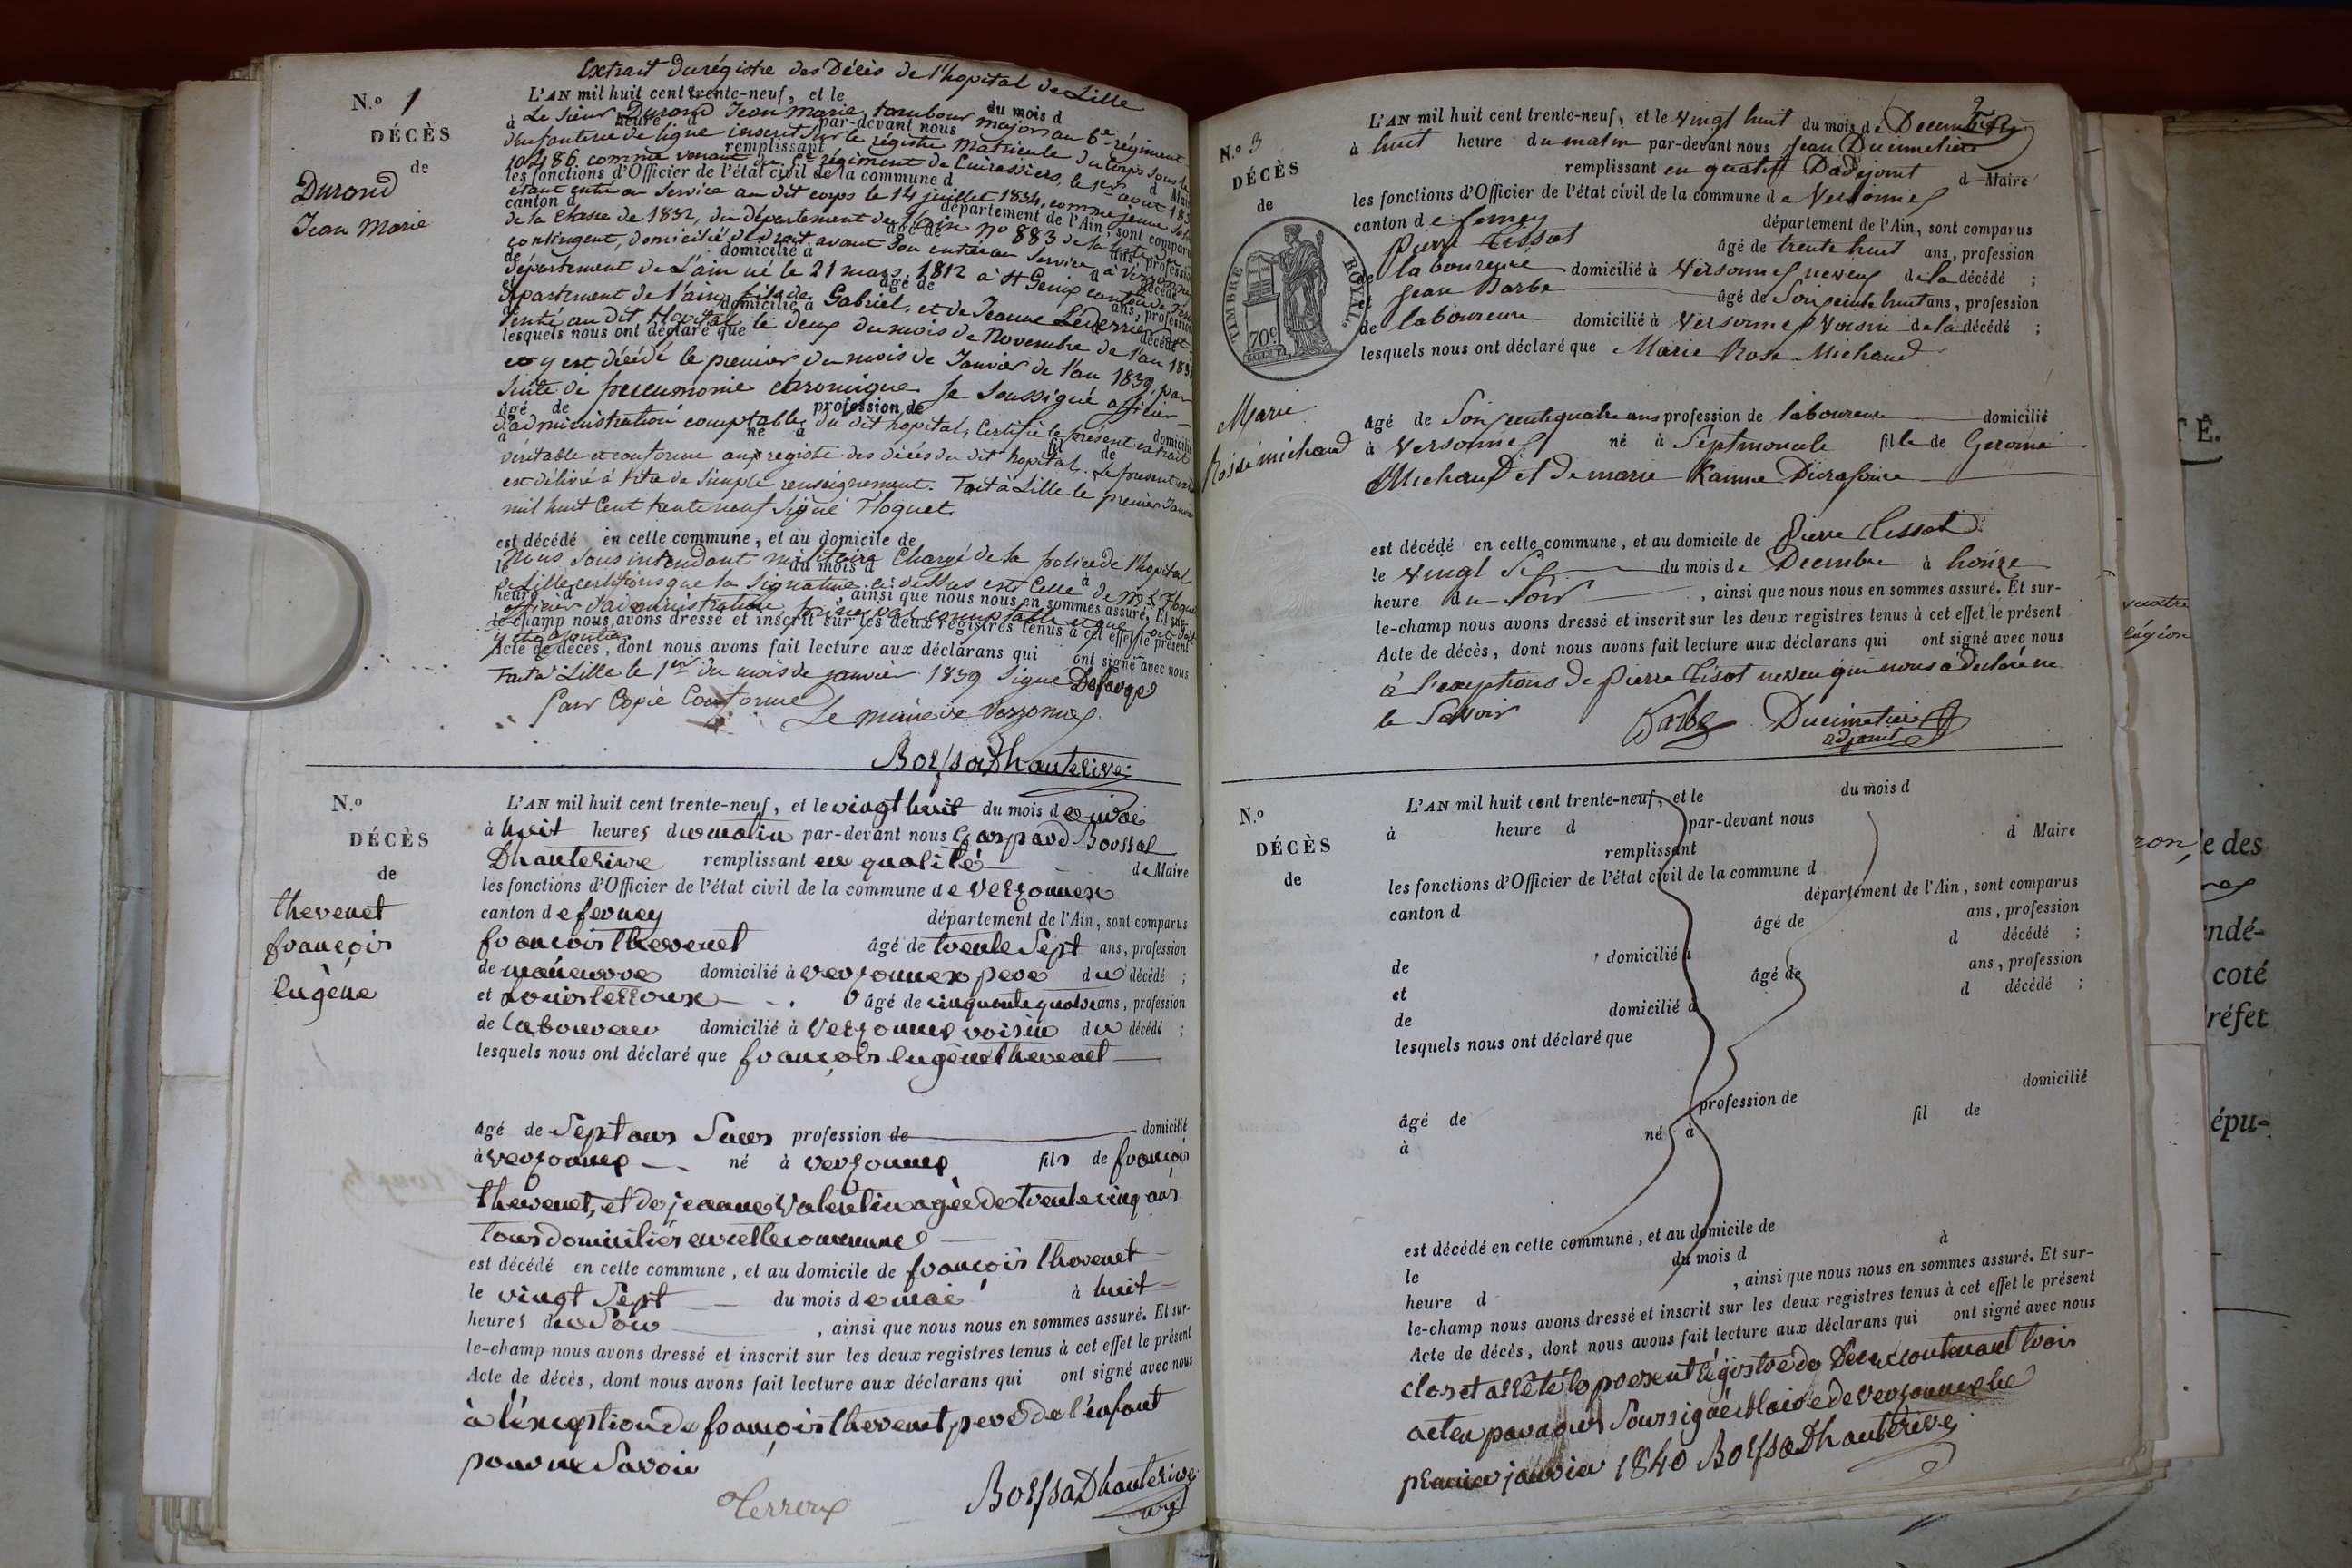 Extrait du régistre des Décès de l'hopital de Lille
N.º 1
DÉCÈS
de
Durand
Jean Marie
L'AN mil huit cent trente-neuf, et le du mois d
à heure d par-devant nous
Le Sieur Durand Jean Marie, tambour major au 6e régiment
d'infanterie de ligne inscrit sur le régistre matricule du corps sous le
remplissant d Maire
10486 comme venant du régiment de Cuirassiers, le 1er aout
les fonctions d'Officier de l'état civil de la commune d
étant entré au Service au dit corps le 14 juillet 1834, comme jeune
canton d département de l'Ain, sont comparus
de la Classe de 1832, du département de l'Ain no 883 de la liste
âgé de ans, profession
contingent, domicilié de droit avant son entrée au Service à
de domicilié à d décédé
département de L'ain né le 21 mars 1812 à St Genix canton de
et âgé de ans, profession
département de l'ain, fils de Gabriel, et de Jeanne Lederrier
de domicilié à d décédé
Entré au dit Hopital le deux du mois de Novembre de l'an
lesquels nous ont déclaré que
et y est décédé le premier du mois de Janvier de l'an 1839, par
suite de pneumonie chronique. Je Soussigné officier
âgé de profession de domicilié
d'administration comptable du dit hopital, Certifie le présent extrait
à né à fil de
véritable et conforme aux registre des décès du dit hopital. Le present
est délivré à titre de simple renseignement. Fait à Lille le premier Janvier
mil huit Cent trente neuf Signé Floquet.
est décédé en cette commune, et au domicile de
Nous Sous intendant militaire Chargé de la police de l'hopital
le du mois d à
de Lille certifions que la Signature ci dessus est Celle de Mr
heure d , ainsi que nous nous en sommes assuré. Et sur-
officier d'administration
le-champ nous avons dressé et inscrit sur les deux registres tenus à cet effet le présent
y être ajoutée
Acte de décès, dont nous avons fait lecture aux déclarans qui ont signé avec nous
Fait à Lille le 1er du mois de janvier 1839 Signé
Pour Copie Conforme
Le maire de Versonnex
Boussa Dhauterive
N.º
DÉCÈS
de
thevenet
françois
Eugène
L'AN mil huit cent trente-neuf, et le vingt huit du mois de mai
à huit heures du matin par-devant nous Gaspard Boussat
Dhauterive remplissant en qualité de Maire
les fonctions d'Officier de l'état civil de la commune de Versonnex
canton de ferney département de l'Ain, sont comparus
françois thevenet âgé de trente Sept ans, profession
de manœuvre domicilié à versonnex pere du décédé ;
et Louis terroux âgé de cinquante quatre ans, profession
de laboureur domicilié à Versonnex voisin du décédé ;
lesquels nous ont déclaré que françois Eugène thevenet
âgé de Sept ans profession de domicilié
à versonnex né à versonnex fils de françois
thevenet, et de jeanne Valentin agée de trente cinq ans
tous domiciliés en cette commune
est décédé en cette commune, et au domicile de françois thevenet
le vingt Sept du mois de mai à huit
heures du Soir , ainsi que nous nous en sommes assuré. Et sur-
le-champ nous avons dressé et inscrit sur les deux registres tenus à cet effet le présent
Acte de décès, dont nous avons fait lecture aux déclarans qui ont signé avec nous
à l'exception de françois thevenet pere de l'enfant
pour ne Savoir
Terroux
Boussa Dhauterive
N.º 3
DÉCÈS
de
TIMBRE ROYAL
70c.
Marie
Rose michaud
L'AN mil huit cent trente-neuf, et le vingt huit du mois de Decembre
à huit heure du matin par-devant nous Jean Ducimetiere
remplissant en qualité D'adejoint d Maire
les fonctions d'Officier de l'état civil de la commune de Versonnex
canton de ferney département de l'Ain, sont comparus
Pierre Tissot âgé de trente huit ans, profession
de laboureure domicilié à Versonnex neveux de la décédé ;
et Jean Barbe âgé de Soissente huit ans, profession
de laboureure domicilié à Versonnex Voisin de la décédé ;
lesquels nous ont déclaré que Marie Rose Michaud
âgé de Soissentequatre ans profession de laboureure domicilié
à Versonnex né à Septmoncele fille de Gerome
Michaud et de marie
est décédé en cette commune, et au domicile de Pierre Tissot
le vingt Sept du mois de Decembre à honze
heure du Soir , ainsi que nous nous en sommes assuré. Et sur-
le-champ nous avons dressé et inscrit sur les deux registres tenus à cet effet le présent
Acte de décès, dont nous avons fait lecture aux déclarans qui ont signé avec nous
à l'exeptions de Pierre Tisot neveu qui nous a declaré ne
le Savoir
Barbe Ducimetiere
adjoint
N.º
DÉCÈS
de
L'AN mil huit cent trente-neuf, et le du mois d
à heure d par-devant nous
remplissant d Maire
les fonctions d'Officier de l'état civil de la commune d
canton d département de l'Ain, sont comparus
âgé de ans, profession
de domicilié à d décédé ;
et âgé de ans, profession
de domicilié à d décédé ;
lesquels nous ont déclaré que
âgé de profession de domicilié
à né à fil de
est décédé en cette commune, et au domicile de
le du mois d à
heure d , ainsi que nous nous en sommes assuré. Et sur-
le-champ nous avons dressé et inscrit sur les deux registres tenus à cet effet le présent
Acte de décès, dont nous avons fait lecture aux déclarans qui ont signé avec nous
Clos et arrêté le present régistre de Décès contenant trois
actes par nous Soussigné Maire de versonnex le
premier janvier 1840 Boussa Dhauterive